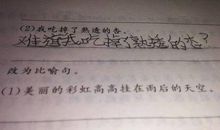 (2)我吃掉了熟透的杏。
难道我吃掉了熟透的杏?
改为比喻句。
(1)美丽的彩虹高高挂在雨后的天空。